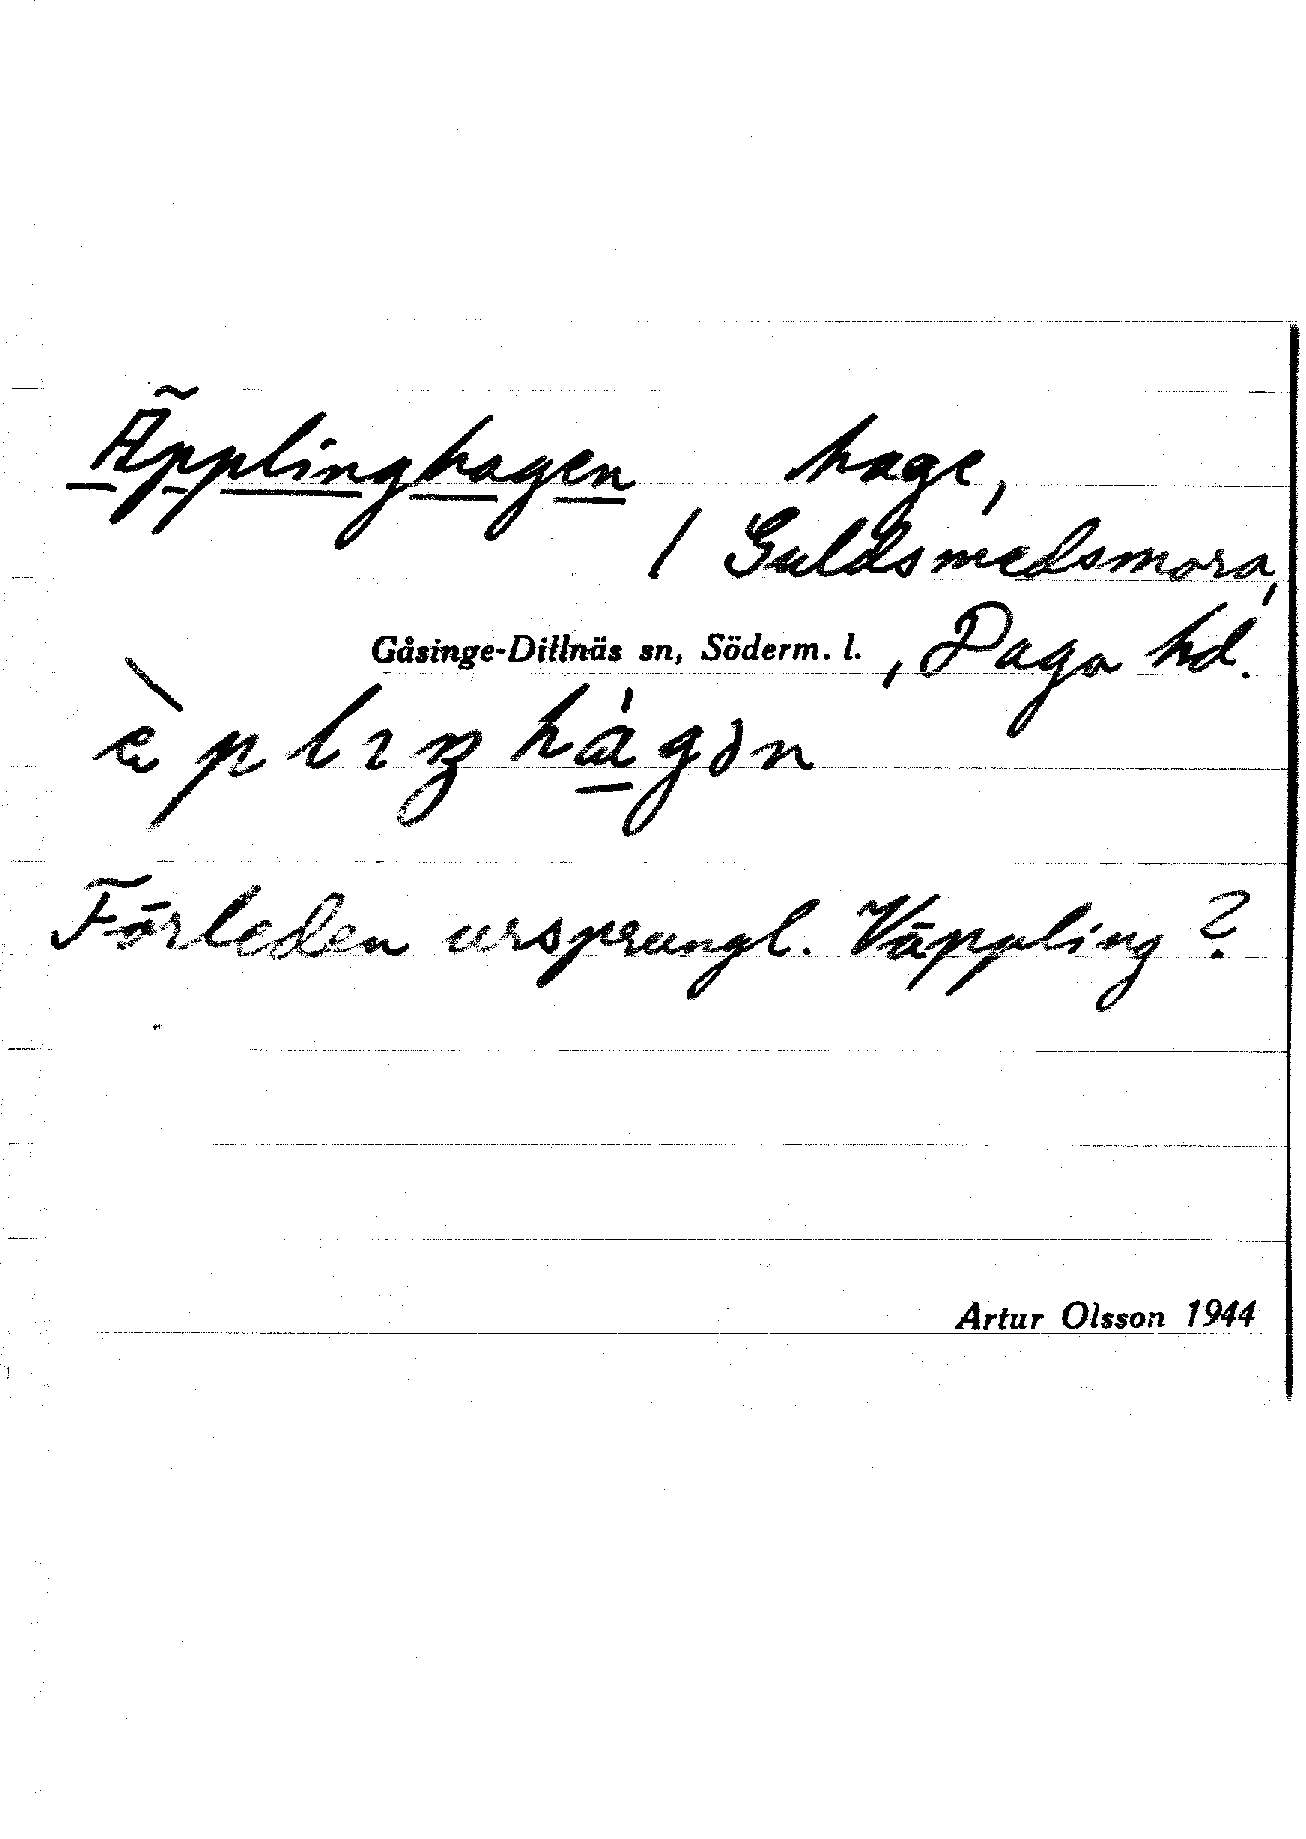 Äpplinghagen, hage,
/ Guldsmedsmora,
Gåsinge-Dillnäs sn, Söderm. l., Daga hd.
Förleden ursprungl. Väppling?
Artur Olsson 1944